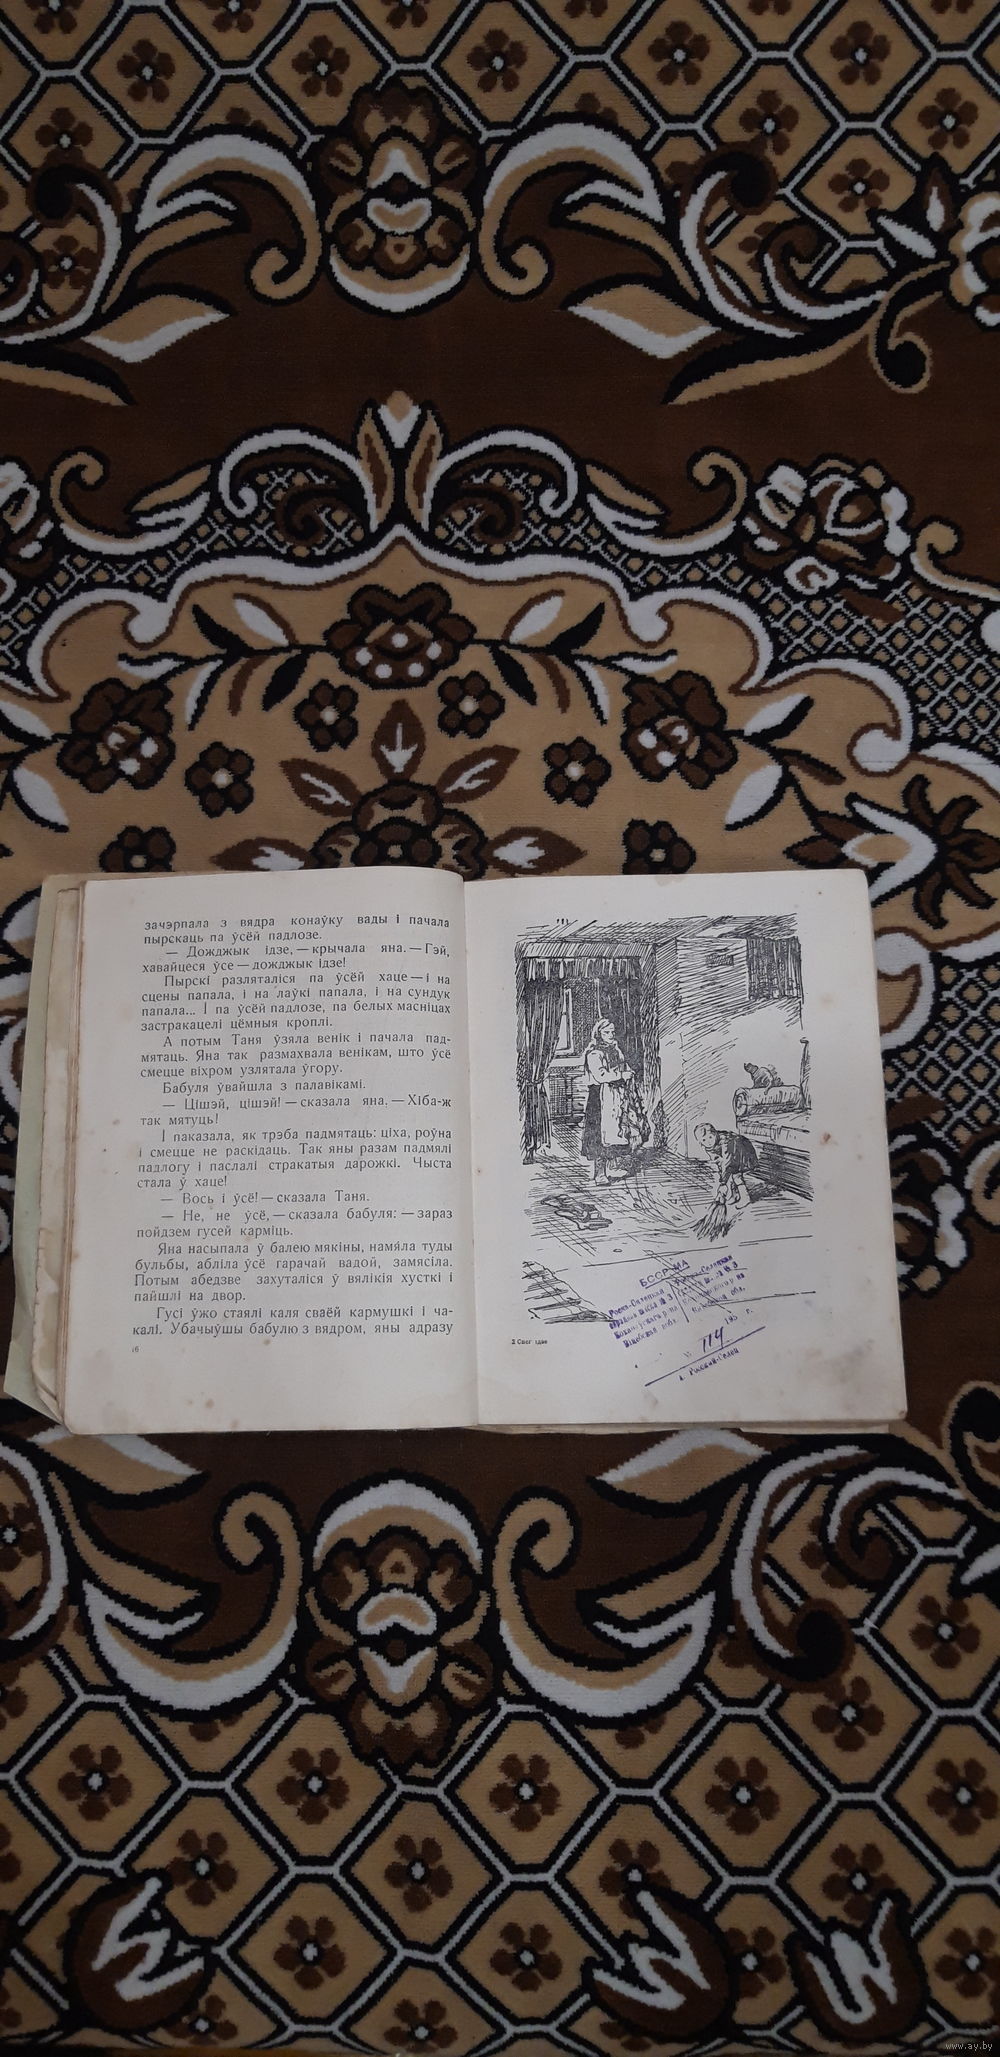 зачэрпала з вядра конаўку вады і пачала
пырскаць па ўсёй падлозе.
— Дожджык ідзе, — крычала яна. — Гэй,
хавайцеся ўсе — дожджык ідзе!
Пырскі разляталіся па ўсёй хаце — і на
сцены папала, і на лаўкі папала, і на сундук
папала... І па ўсёй падлозе, па белых масніцах
застракацелі цёмныя кроплі.
А потым Таня ўзяла венік і пачала пад-
мятаць. Яна так размахвала венікам, што ўсё
смецце віхром узлятала ўгору.
Бабуля ўвайшла з палавікамі.
— Цішэй, цішэй! — сказала яна. — Хіба-ж
так мятуць!
І паказала, як трэба падмятаць: ціха, роўна
і смецце не раскідаць. Так яны разам падмялі
падлогу і паслалі стракатыя дарожкі. Чыста
стала ў хаце!
— Вось і ўсё! — сказала Таня.
— Не, не ўсё, — сказала бабуля: — зараз
пойдзем гусей карміць.
Яна насыпала ў балею мякіны, намяла туды
бульбы, абліла ўсё гарачай вадой, замясіла.
Потым абедзве захуталіся ў вялікія хусткі і
пайшлі на двор.
Гусі ўжо стаялі каля сваёй кармушкі і ча-
калі. Убачыўшы бабулю з вядром, яны адразу
16
2 Снег ідзе
БССР
195 г.
114
www.ay.by